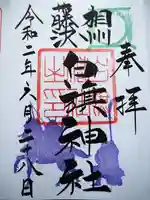 奉拝
相州
藤沢
白旗神社
令和二年六月二十八日